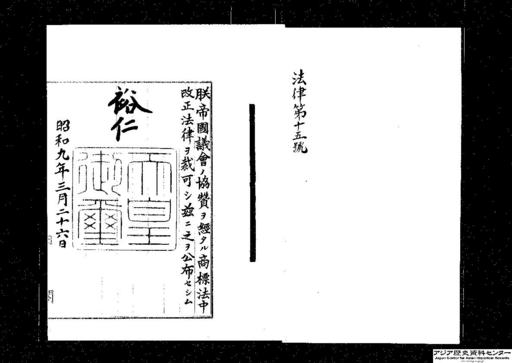 法律第十五號
朕帝國議會ノ協贊ヲ經タル商標法中
改正法律ヲ裁可シ茲ニ之ヲ公布セシム
裕仁
天皇御璽
昭和九年三月二十六日
アジア歴史資料センター
Japan Center for Asian Historical Records